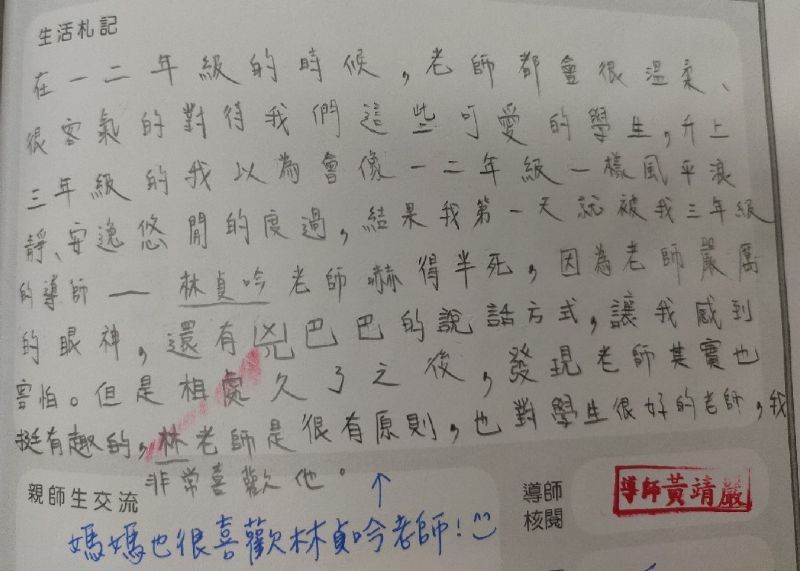 生活札記
在一二年級的時候,老師都會很溫柔、
很客氣的對待我們這些可愛的學生,升上
三年級的我以為會像一二年級一樣風平浪
靜、安逸悠閒的度過,結果我第一天就被我三年級
的導師——林貞吟老師嚇得半死,因為老師嚴厲
的眼神,還有兇巴巴的說話方式,讓我感到
害怕。但是相處久了之後,發現老師其實也
挺有趣的,林老師是很有原則,也對學生很好的老師,我
非常喜歡他。
親師生交流
導師
核閱
導師黃靖嚴
媽媽也很喜歡林貞吟老師!